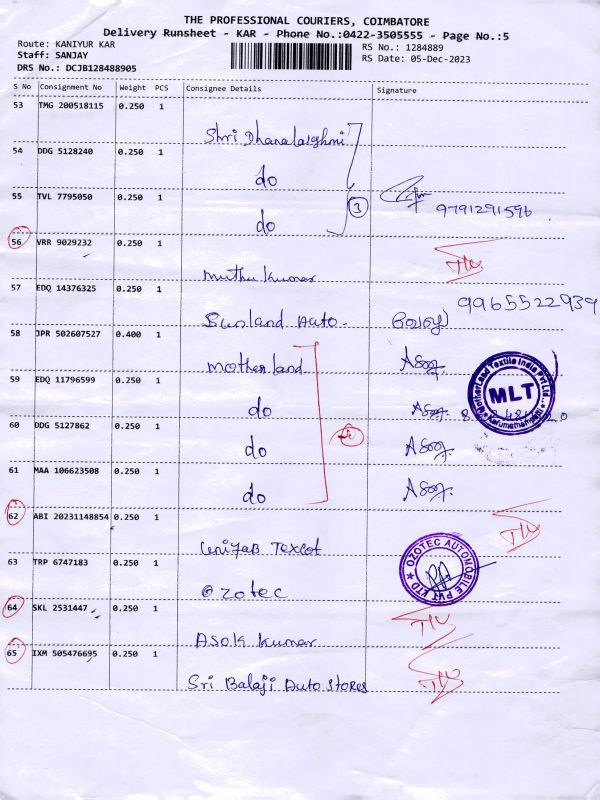 THE PROFESSIONAL COURIERS, COIMBATORE
Delivery Runsheet - KAR - Phone No.:0422-3505555 - Page No.:5
Route: KANIYUR KAR
Staff: SANJAY
DRS No.: DCJB128488905
RS No.: 1284889
RS Date: 05-Dec-2023
S No Consignment No Weight PCS Consignee Details Signature
53 TMG 200518115 0.250 1
Shri Dhanalakshmi
54 DDG 5128240 0.250 1
do
55 TVL 7795050 0.250 1
do
3
9791291596
56 VRR 9029232 0.250 1
Muthu kumar
57 EDQ 14376325 0.250 1
Sunland Auto.
9965522939
58 JPR 502607527 0.400 1
Motherland
59 EDQ 11796599 0.250 1
do
60 DDG 5127862 0.250 1
do
61 MAA 106623508 0.250 1
do
MotherLand Textile India Pvt Ltd.
MLT
Karumathampatti
62 ABI 20231148854 0.250 1
63 TRP 6747183 0.250 1
Ozotec
OZOTEC AUTOMOBILE PVT LTD
64 SKL 2531447 0.250 1
Asok kumar
65 IXM 505476695 0.250 1
Sri Balaji Auto Stores